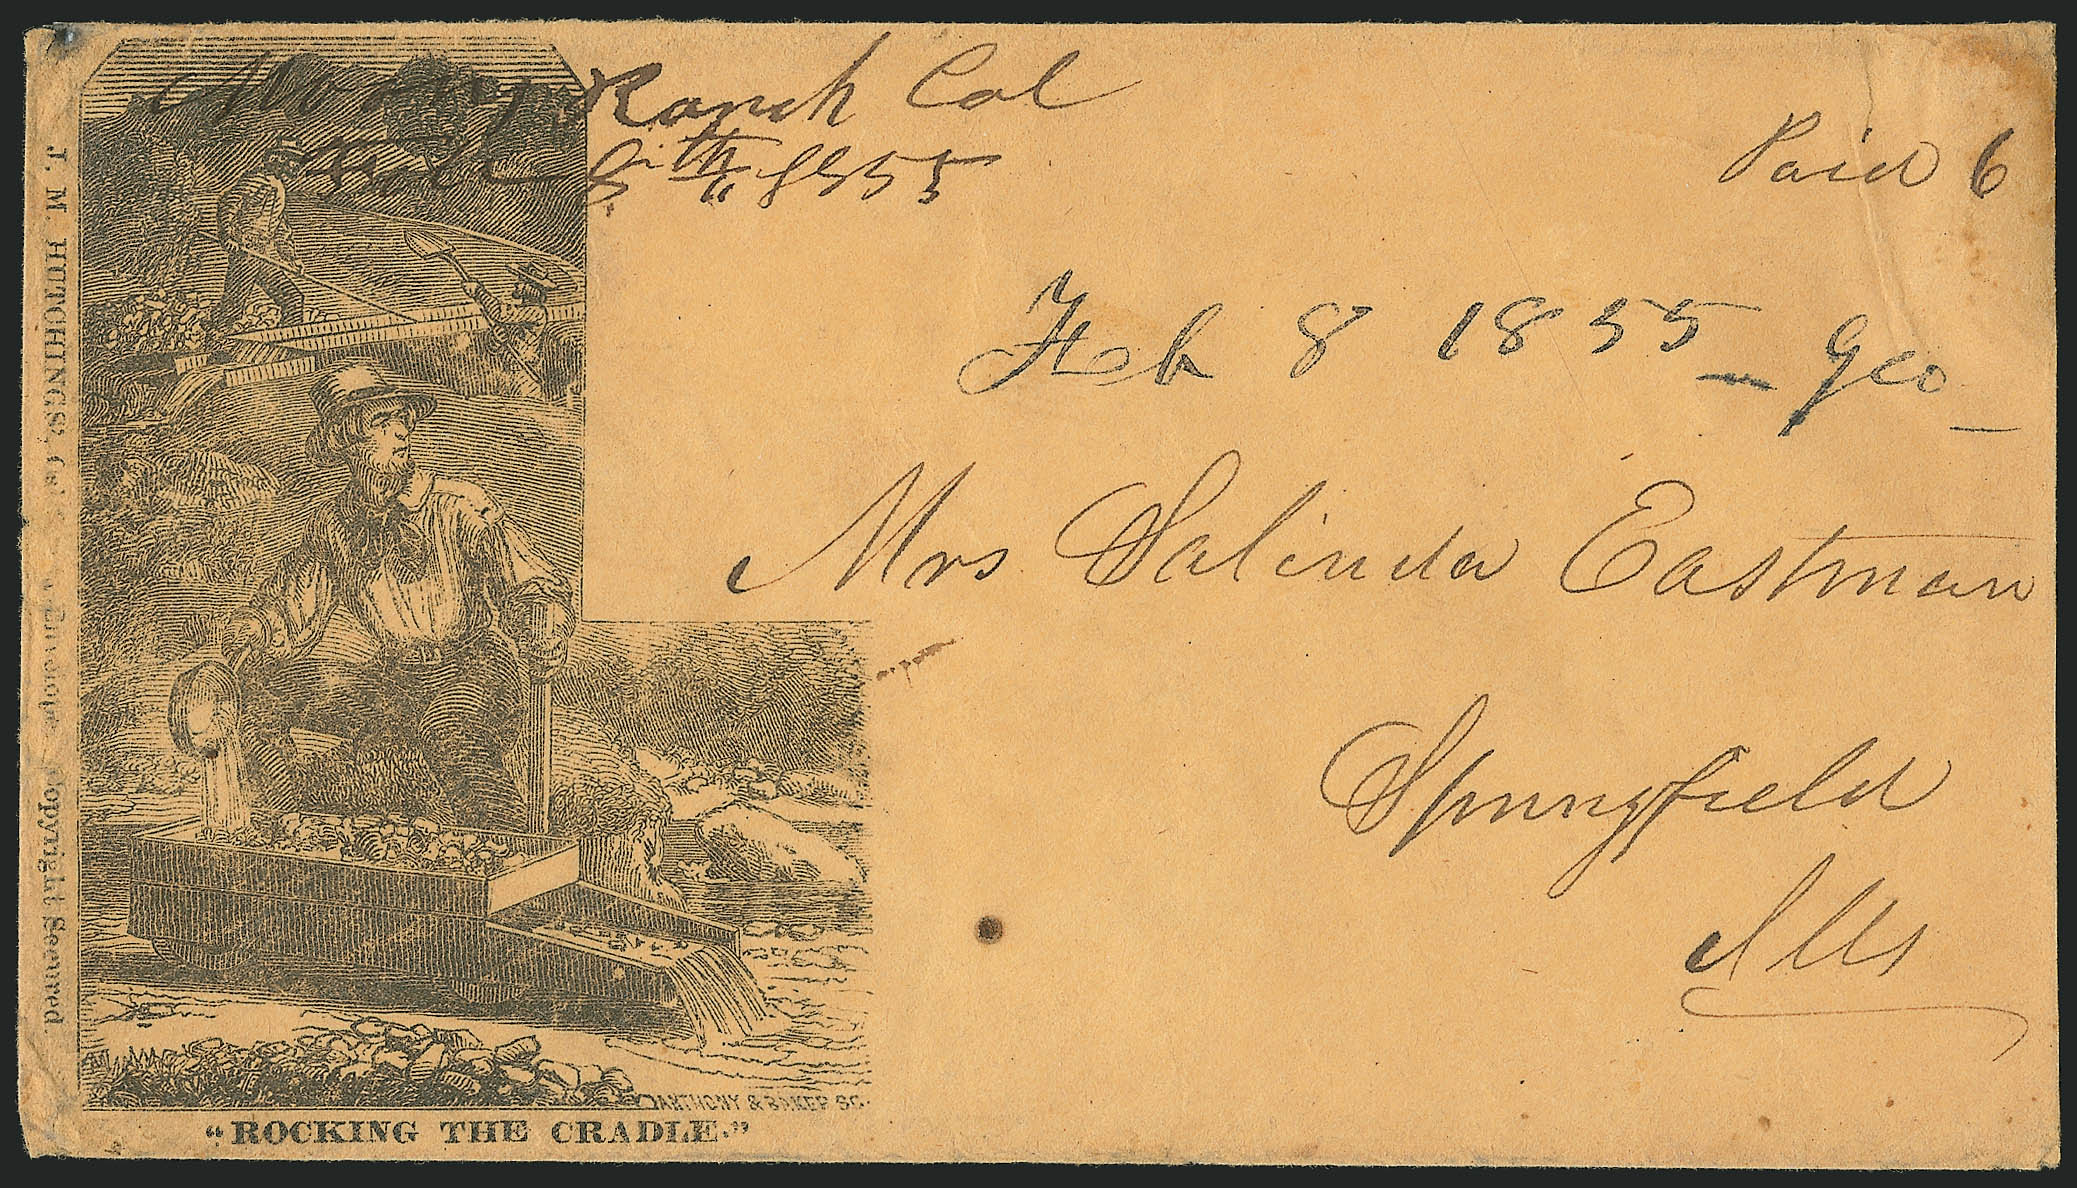 Ranch Cal
8th 1855
Paid 6
Feb 8 1855 - Geo -
Mrs Salinda Eastman
Springfield
Ills
J. M. HUTCHINGS', Cal. Envelope. Copyright Secured.
ANTHONY & BAKER SC.
"ROCKING THE CRADLE."